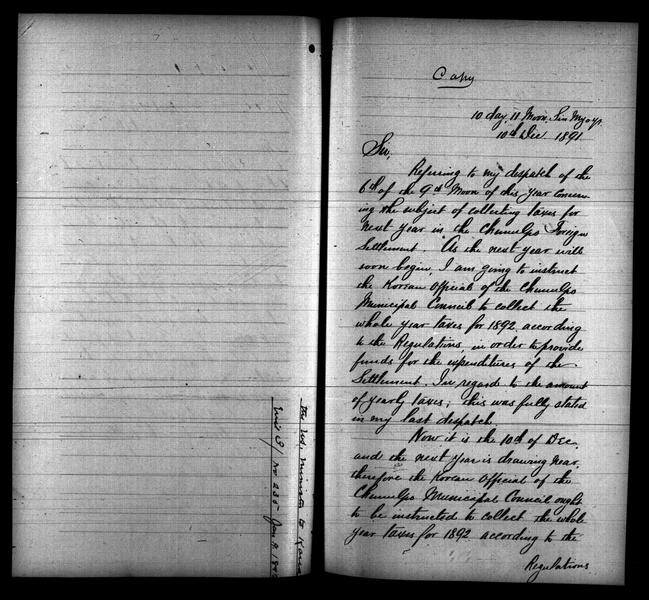 Copy
10 day, 11 Moon, Sin Myo yr.
10th Dec 1891.
Sir,
Referring to my despatch of the
6th of the 9th Moon of this year concern-
ing the subject of collecting taxes for
next year in the Chemulpo Foreign
Settlement. As the next year will
soon begin, I am going to instruct
the Korean Official of the Chemulpo
Municipal Council to collect the
whole year taxes for 1892 according
to the Regulations in order to provide
funds for the expenditures of the
Settlement. In regard to the amount
of yearly taxes; this was fully stated
in my last despatch.
Now it is the 10th of Dec.
and the next year is drawing near,
therefore the Korean Official of the
Chemulpo Municipal Council ought
to be instructed to collect the whole
year taxes for 1892 according to the
Regulations
the U.S. Minister to Korea
No 235 Jan 9,